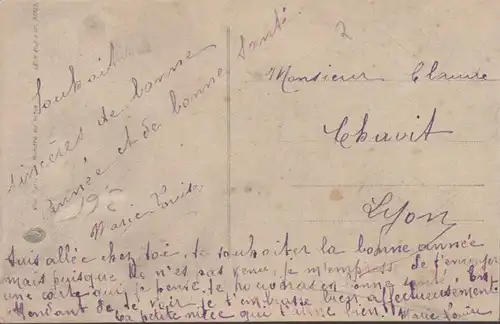 Souhaits
sincères de bonne
année et de bonne Santé
Marie Louise
Monsieur Claude
Chavit
Lyon
Suis allée chez toi, te souhaiter la bonne année
mais puisque tu n'es pas venu, je m'empresse de t'envoyer
une carte qui je pense te trouveras en bonne santé. En
attendant de te voir, je t'embrasse bien affectueusement
ta petite nièce qui t'aime bien.
Marie Louise